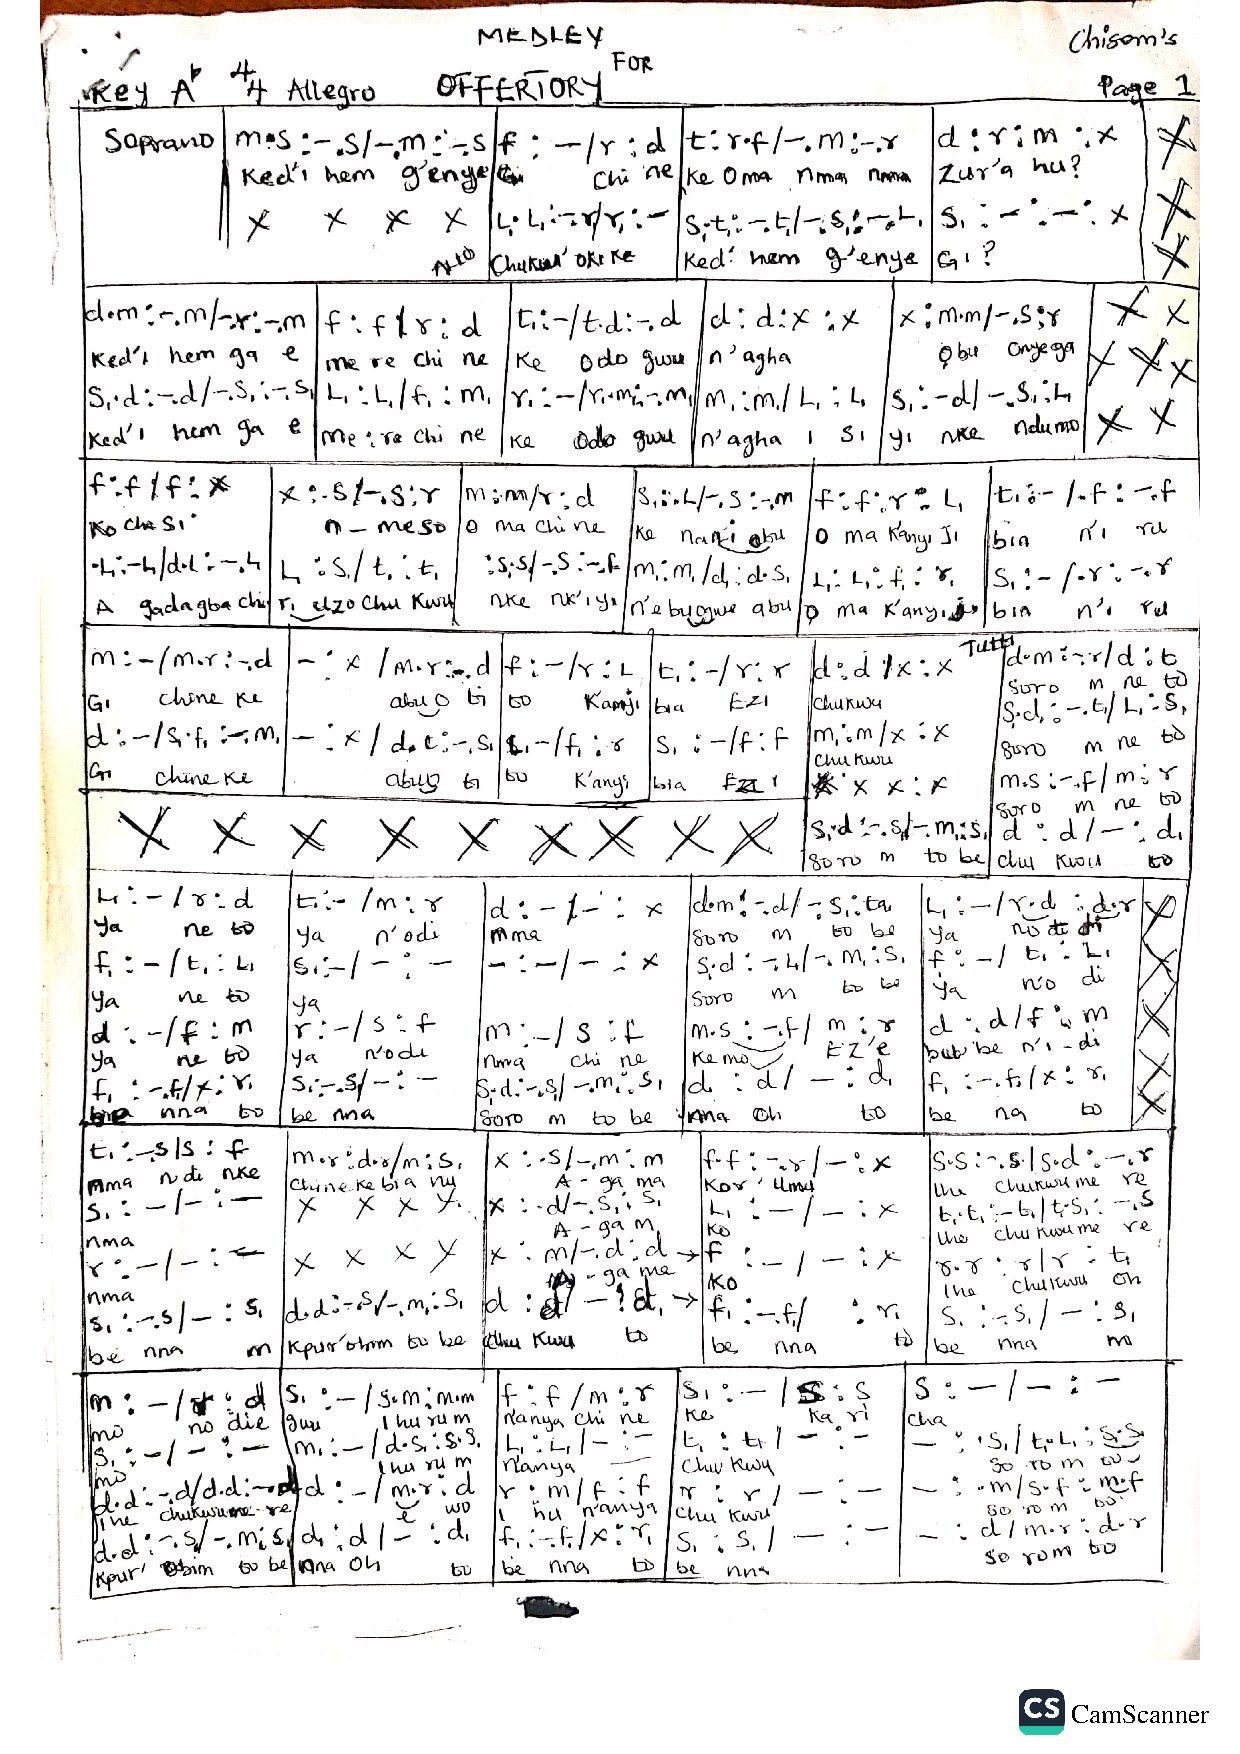 MEDLEY
FOR
Chisom's
Key A♭ 4/4 Allegro OFFERTORY Page 1
Soprano m.s :-.s/-.m :-.s f : -/r : d t : r.f/-.m :-.r d : r : m : x
Ked'i hem g'enye chi ne ke Oma nma nma Zur'a hu?
x x x x L₁. L₁ :-.r/r₁ : - S₁.t₁ :-.t₁/-.S₁ :-.L₁ S₁ : - : - : x
Alto Chukwu' okike Ked'i hem g'enye Gi?
d.m :-.m/-.r :-.m f : f/r : d t₁ :-/t.d :-.d d : d : x : x x : m.m/-.s : r
Ked'i hem ga e me re chi ne ke Odo gwu n'agha Obu onyega
S₁.d :-.d/-.S₁ :-.S₁ L₁ : L₁/f₁ : m₁ r₁ :-/r₁.m₁ :-.m₁ m₁ : m₁/L₁ : L₁ S₁ :-d/-.S₁ : L₁
Ked'i hem ga e me : re chi ne ke Odo gwu n'agha i si yi nke ndumo
f : f/f : x x :.s/-.s : r m : m/r : d S₁ :.L/-.s :-.m f : f : r : L₁ t₁ :-/.f :-.f
Ko cha si n-meso O ma chi ne ke nani obu O ma kanyi Ji bia n'i ru
.L₁ :-L₁/d.L :-.L₁ L₁ : S₁/t₁ : t₁ :s.s/-.s :-.f m₁ : m₁/d₁ : d.S₁ L₁ : L₁ : f₁ : r₁ S₁ :-/.r :-.r
A gadagba chi ri uzo Chu Kwu nke nk'iyi n'ebuguwe abu O ma k'anyi bia n'i ru
m :-/m.r :-.d - : x/m.r :-.d f :-/r : L t₁ :-/r : r d : d/x : x Tutti d.m :-.r/d : t
Gi chine ke abuo ti to Kanyi bia Ezi Chukwu soro m ne to
S.d₁ :-.t₁/L₁ : S₁
d :-/S₁.f₁ :-.m₁ - : x/d.t :-.S₁ L₁ :-/f₁ : r S₁ :-/f : f m₁ : m/x : x soro m ne to
Gi chine ke abuo ti to K'anyi bia Ezi Chukwu m.s :-.f/m : r
x x x : x soro m ne to
S₁.d :-.s/-.m₁ : S₁ d : d/- : d₁
soro m to be chu kwu to
L₁ :-/r : d t₁ :-/m : r d :-/- : x d.m :-.d/-.S₁ : ta L₁ :-/r.d : d.r
ya ne to ya n'odi mma soro m to be ya no di
f₁ :-/t₁ : L₁ S₁ :-/- : - - :-/- : x S.d :-.L/-.m₁ : S₁ f :-/t₁ : L₁
ya ne to ya soro m to be ya n'o di
d :-/f : m r :-/s : f m :-/s : f m.s :-.f/m : r d : d/f : m
ya ne to ya n'odi nma chi ne Kemo Ez'e be n'i-di
f₁ :-.f₁/x : r₁ S₁ :-.s/- : - S.d :-.s/-.m₁ : S₁ d₁ : d/- : d₁ f₁ :-.f₁/x : r₁
nna to be nna soro m to be nna oh to be na to
t₁ :-.s/s : f m.r : d.r/m : S₁ x :.s/-.m : m f.f :-.r/- : x S.S :-.s/s.d :-.r
mma n'odi nke Chine ke bia ny A-ga ma Kor' umu Ihe chukwu me re
S₁ :-/- : - x x x x x :.d/-.S₁ : S₁ L₁ :-/- : x t₁.t₁ :-.t₁/t.S₁ :-.S
nma A-ga m Ko Ihe chukwu me re
r :-/- : - x x x x x : m/-.d : d f :-/- : x r.r : r/r : t₁
nma -ga me Ko Ihe chukwu oh
S₁ :-.s/- : S₁ d.d :-.s/-.m₁ : S₁ d : d/- : d₁ f₁ :-.f/ : r₁ S₁ :-.S₁/- : S₁
be nna m Kpur'obim to be Chu Kwu to be nna to be nna m
m :-/r : d S₁ :-/s.m : m.m f : f/m : r S₁ :-/s : s S :-/- : -
mo no die guu i hu ru m n'anya chi ne ke ka ri cha
S₁ :-/- : - m₁ :-/d.S₁ : S.S₁ L₁ : L₁/- : - t₁ : t₁/- : - - : .S₁/t₁.L₁ : S.S
mo i hu ru m n'anya Chu Kwu so ro m to
d.d :-.d/d.d :-.d d :-/m.r : d r : m/f : f r : r/- : - - : .m/s.f : m.f
Ihe chukwu me re e wo i hu n'anya Chu Kwu so ro m to
d.d :-.s/-.m : S₁ d₁ : d/- : d₁ f₁ :-.f/x : r₁ S₁ : S₁/- : - - : d/m.r : d.r
Kpur' obim to be nna oh to be nna to be nna so ro m to
CS CamScanner